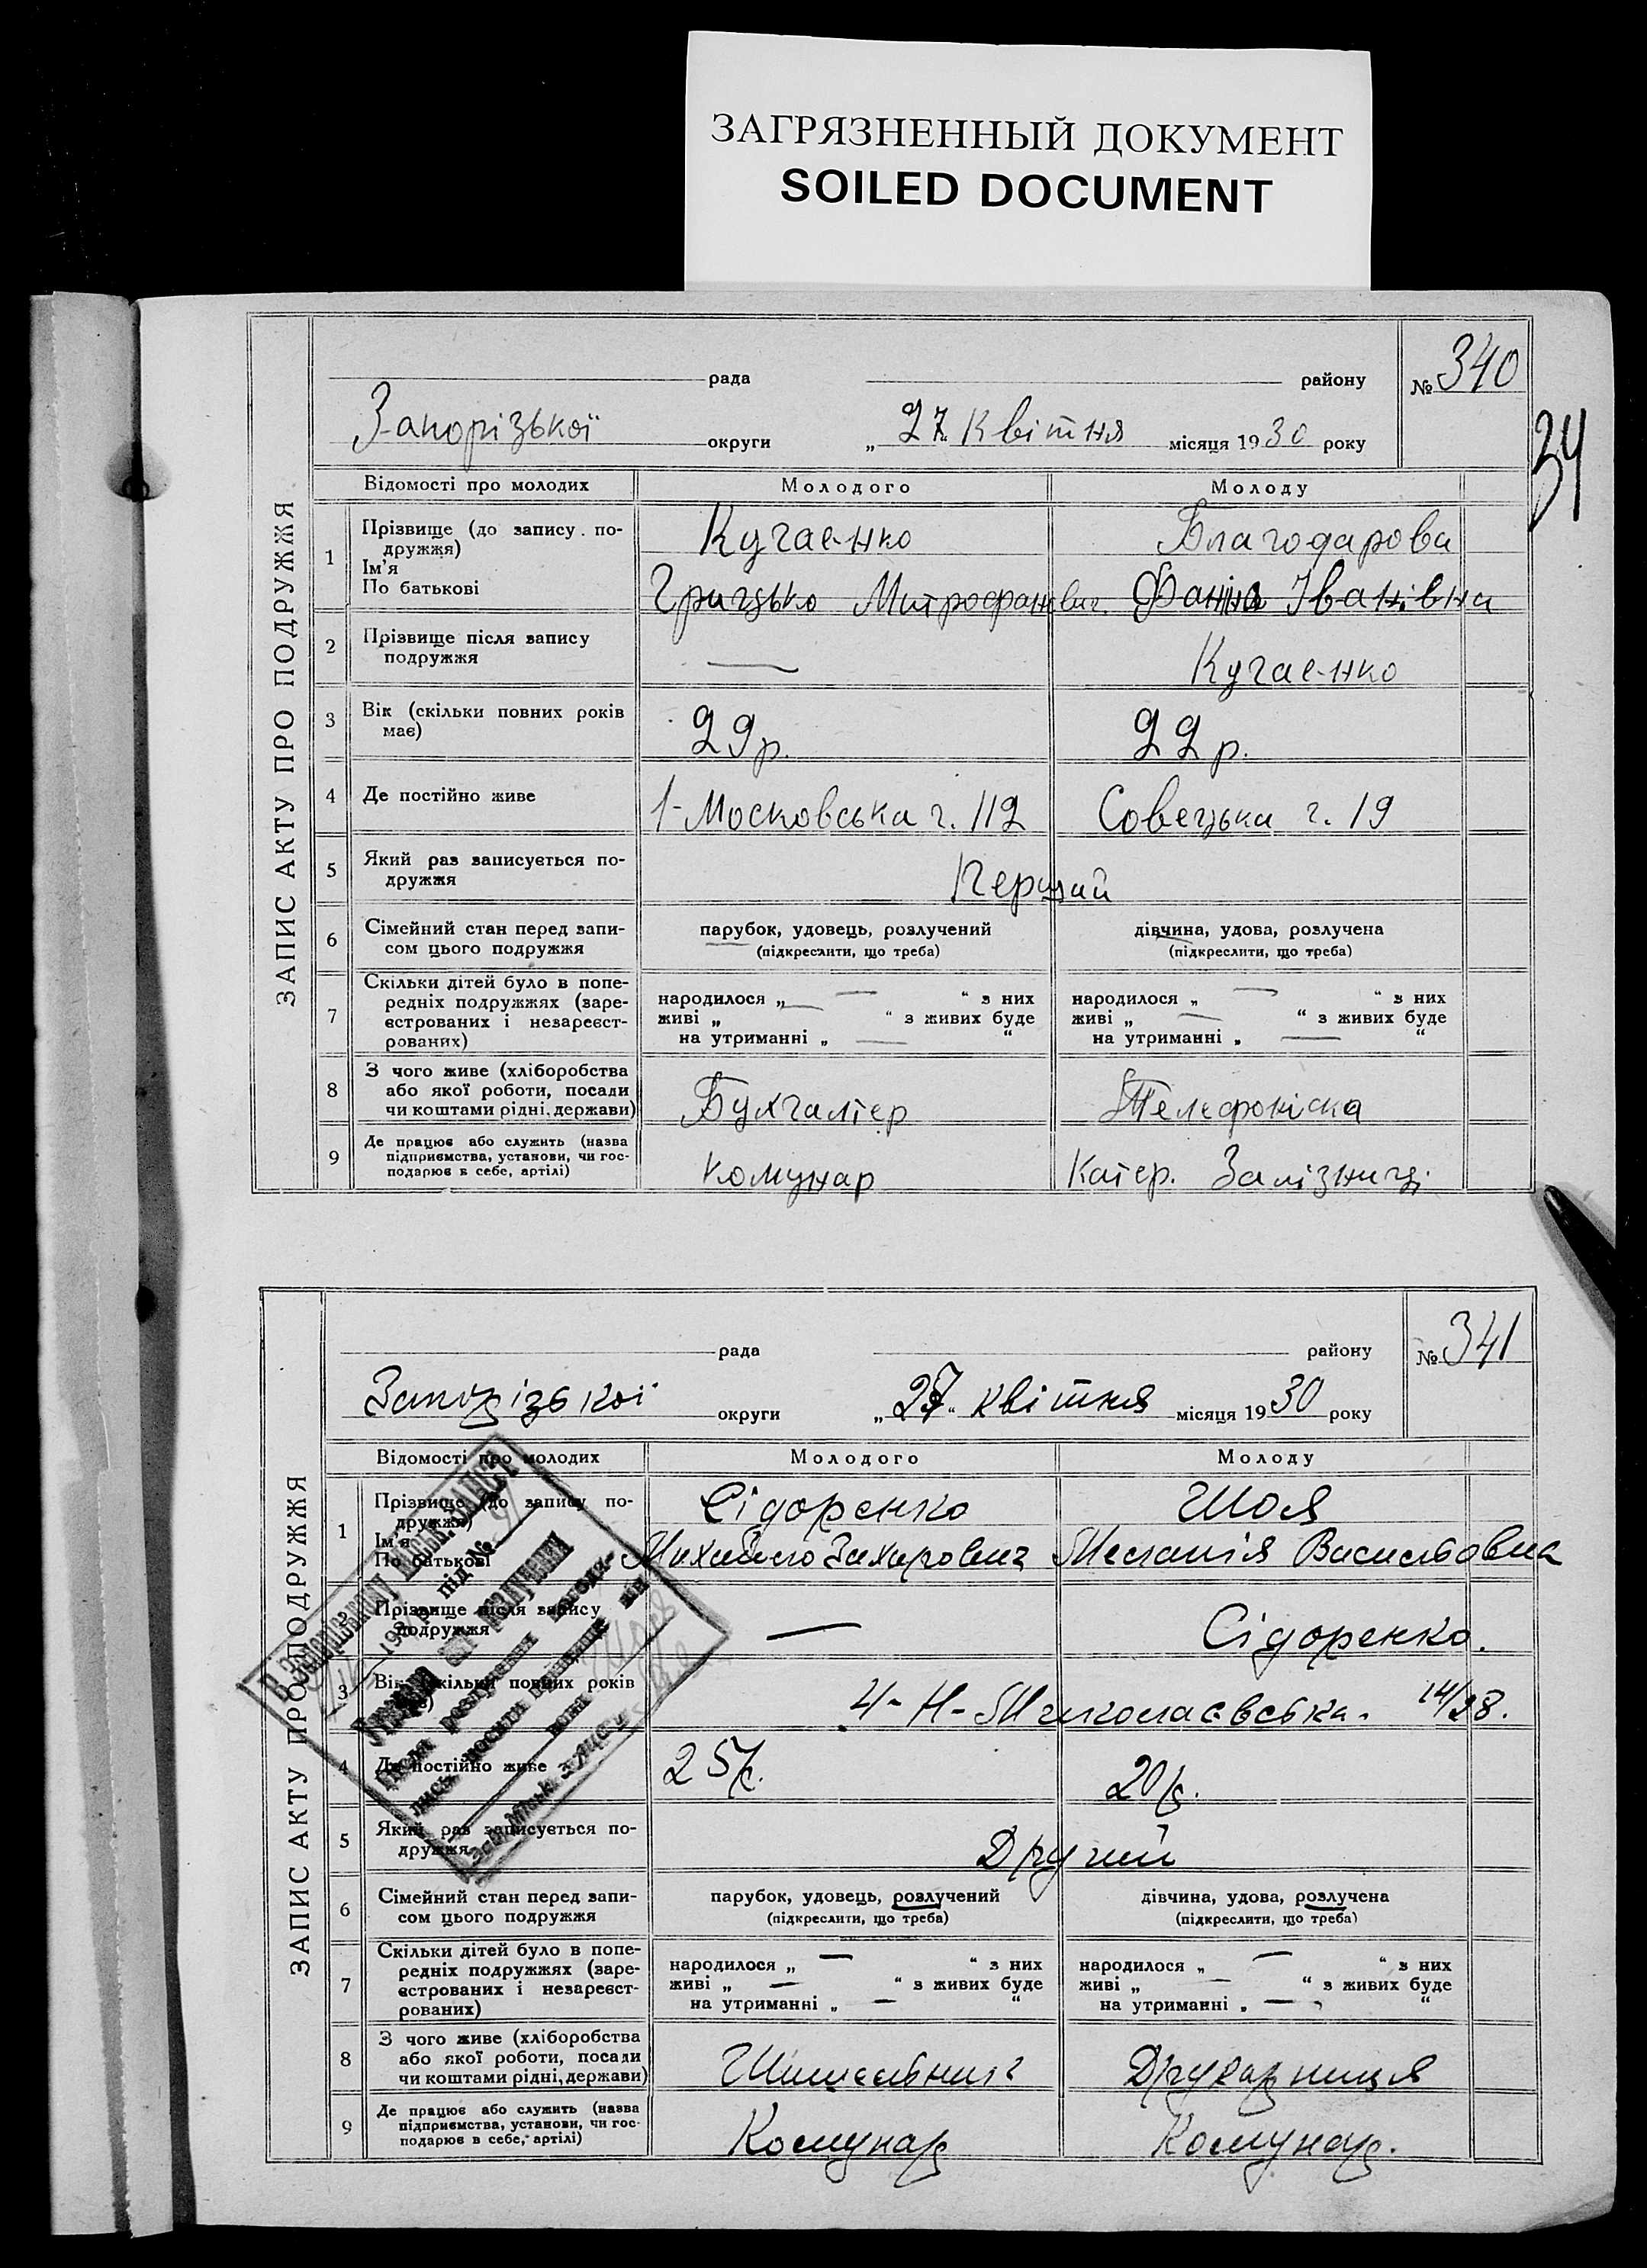 ЗАГРЯЗНЕННЫЙ ДОКУМЕНТ
SOILED DOCUMENT
ЗАПИС АКТУ ПРО ПОДРУЖЖЯ
рада району № 340
Запорізької округи „27“ Квітня місяця 1930 року
34
Відомості про молодих Молодого Молоду
1 Прізвище (до запису по-
дружжя)
Ім'я
По батькові
Кучаенко Благодарова
Грицько Митрофанович Фаніна Іванівна
2 Прізвище після запису
подружжя
— Кучаенко
3 Вік (скільки повних років
має)
29 р. 22 р.
4 Де постійно живе 1-Московська ч. 112 Совецька ч. 19
5 Який раз записується по-
дружжя
Перший
6 Сімейний стан перед запи-
сом цього подружжя
парубок, удовець, розлучений дівчина, удова, розлучена
(підкреслити, що треба) (підкреслити, що треба)
7 Скільки дітей було в попе-
редніх подружжях (заре-
єстрованих і незареєст-
рованих)
народилося „ — “ з них народилося „ — “ з них
живі „ “ з живих буде живі „ — “ з живих буде
на утриманні „ — “ на утриманні „ — “
8 З чого живе (хліборобства
або якої роботи, посади
чи коштами рідні, держави)
Бухгалтер Телефоніска
9 Де працює або служить (назва
підприємства, установи, чи гос-
подарює в себе, артілі)
Комунар Катер. Залізниці
ЗАПИС АКТУ ПРО ПОДРУЖЖЯ
рада району № 341
Запорізької округи „27“ квітня місяця 1930 року
Відомості про молодих Молодого Молоду
1 Прізвище (до запису по-
дружжя)
Ім'я
По батькові
Сідоренко Шоя
Михайло Захарович Меланія Васильовна
Прізвище після запису
подружжя
— Сідоренко.
3 Вік (скільки повних років
4-Н-Миколаєвська. 14/28.
4 Де постійно живе 25 р. 20 р.
5 Який раз записується по-
дружжя
Другий
6 Сімейний стан перед запи-
сом цього подружжя
парубок, удовець, розлучений дівчина, удова, розлучена
(підкреслити, що треба) (підкреслити, що треба)
7 Скільки дітей було в попе-
редніх подружжях (заре-
єстрованих і незареєст-
рованих)
народилося „ — “ з них народилося „ — “ з них
живі „ — “ з живих буде живі „ — “ з живих буде
на утриманні „ — “ на утриманні „ — “
8 З чого живе (хліборобства
або якої роботи, посади
чи коштами рідні, держави)
Друкарниця
9 Де працює або служить (назва
підприємства, установи, чи гос-
подарює в себе, артілі)
Комунар Комунар.